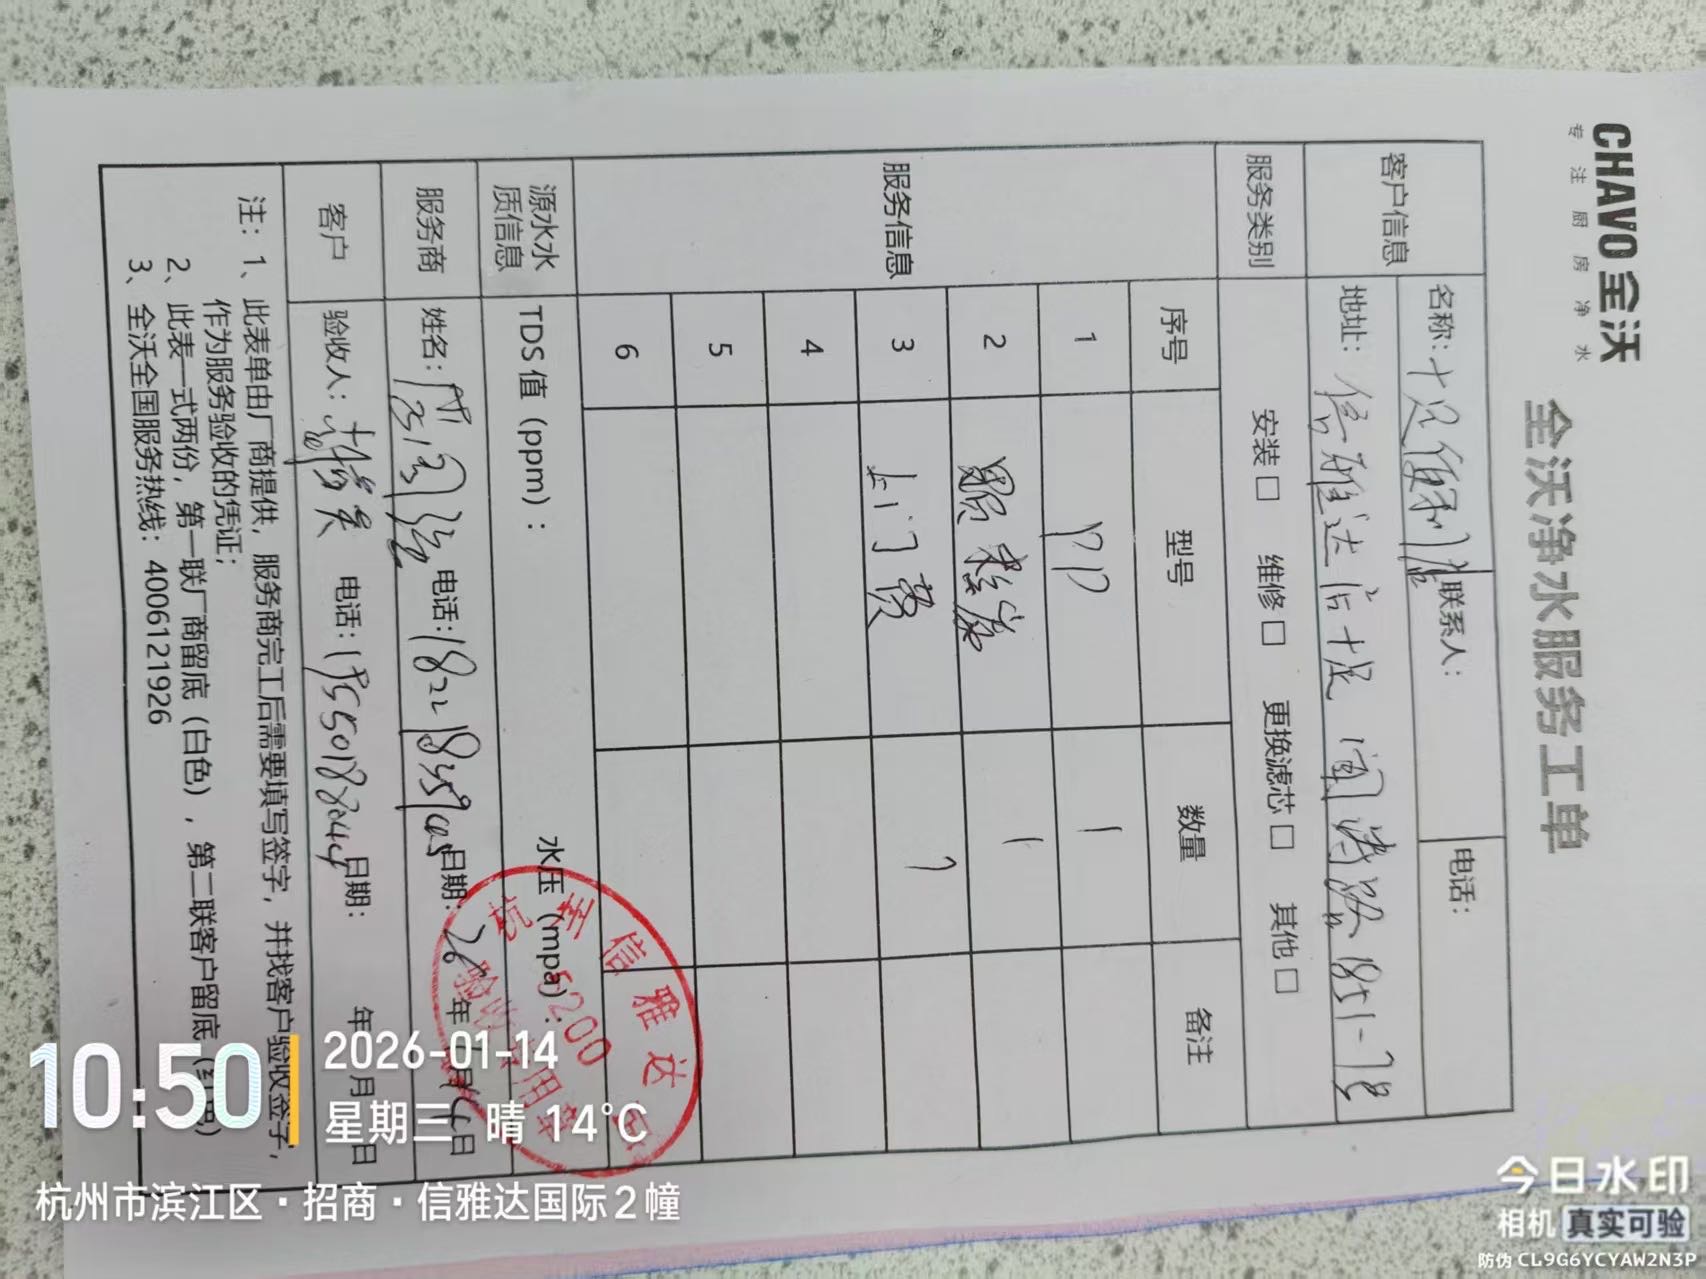 CHAVO 全沃
专注厨房净水
全沃净水服务工单
客户信息 名称：十足便利店 联系人： 电话：
地址：信雅达店十足 闻涛路1851-78
服务类别 安装□ 维修□ 更换滤芯□ 其他□
服务信息 序号 型号 数量 备注
1 PP 1
2 1
3 上门费 1
4
5
6
源水水质信息 TDS值（ppm）： 水压（mpa）：
服务商 姓名： 电话： 日期：26年1月14日
客户 验收人： 电话： 日期： 年 月 日
注：1、此表单由厂商提供，服务商完工后需要填写签字，并找客户验收签字，
作为服务验收的凭证；
2、此表一式两份，第一联厂商留底（白色），第二联客户留底（红色）
3、全沃全国服务热线：4006121926
杭州信雅达店
5200
验收专用章
10:50
2026-01-14
星期三 晴 14℃
杭州市滨江区·招商·信雅达国际2幢
今日水印
相机 真实可验
防伪 CL9G6YCYAW2N3P